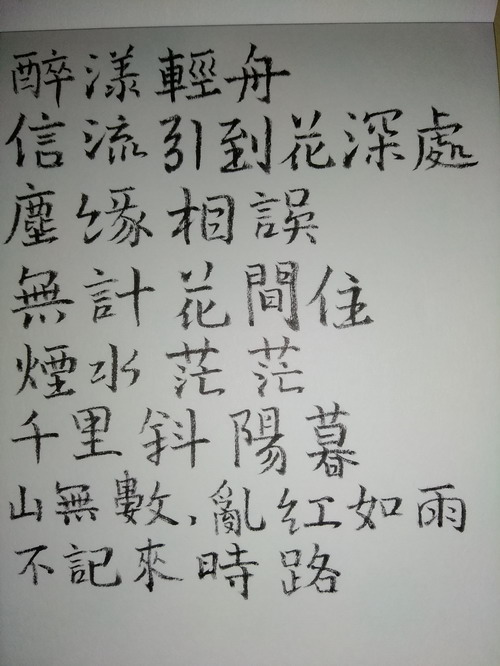 醉漾輕舟
信流引到花深處
塵缘相誤
無計花間住
煙水茫茫
千里斜陽暮
山無數,亂红如雨
不記來時路